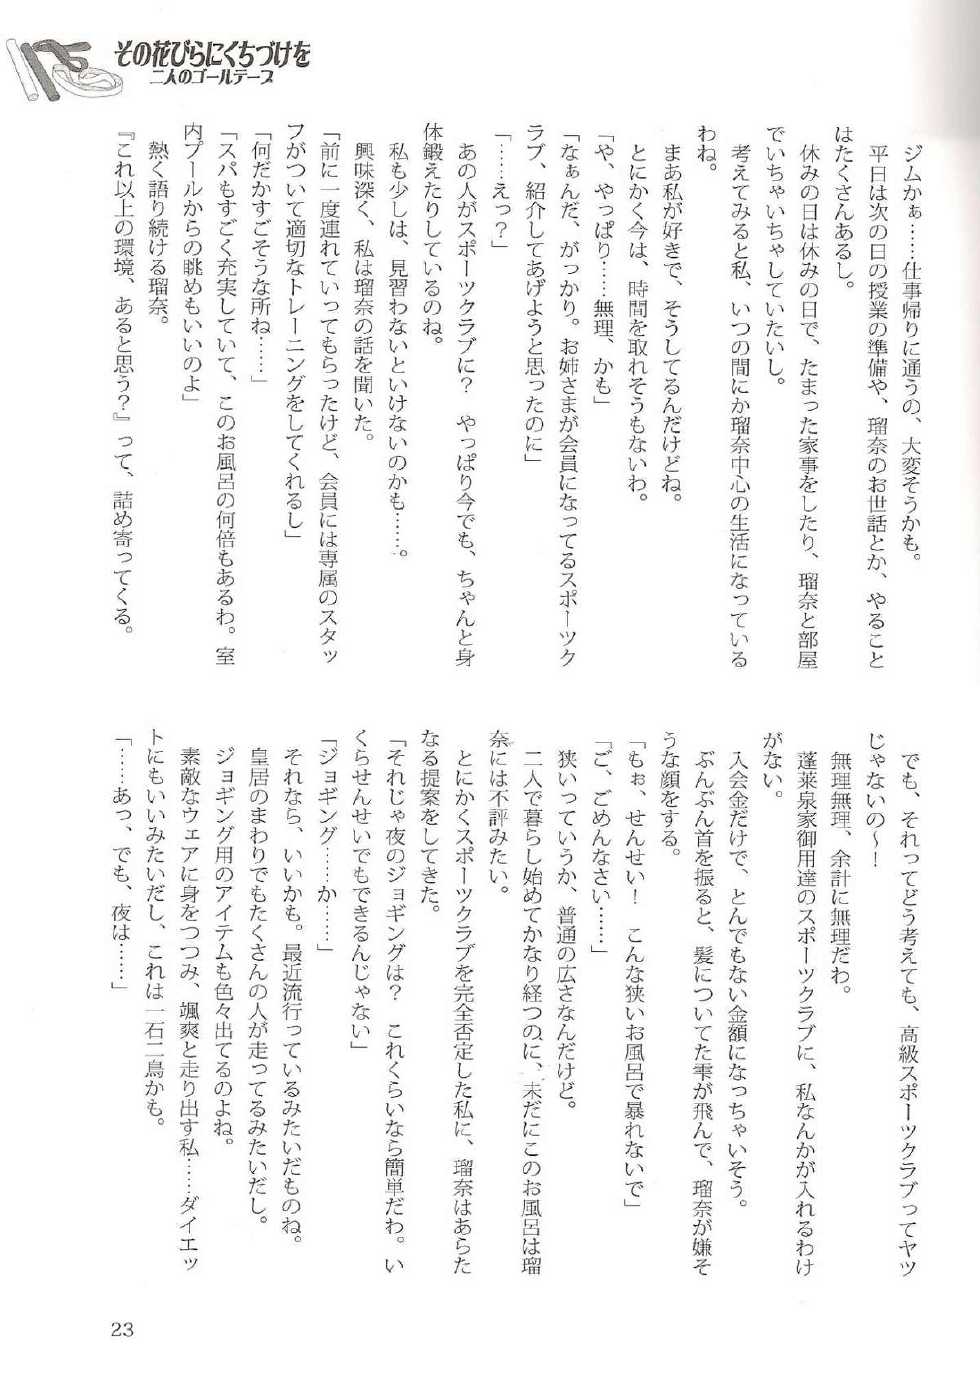 その花びらにくちづけを
二人のゴールテープ
　ジムかぁ……仕事帰りに通うの、大変そうかも。
　平日は次の日の授業の準備や、瑠奈のお世話とか、やること
はたくさんあるし。
　休みの日は休みの日で、たまった家事をしたり、瑠奈と部屋
でいちゃいちゃしていたいし。
　考えてみると私、いつの間にか瑠奈中心の生活になっている
わね。
　まあ私が好きで、そうしてるんだけどね。
　とにかく今は、時間を取れそうもないわ。
「や、やっぱり……無理、かも」
「なぁんだ、がっかり。お姉さまが会員になってるスポーツク
ラブ、紹介してあげようと思ったのに」
「……えっ？」
　あの人がスポーツクラブに？　やっぱり今でも、ちゃんと身
体鍛えたりしているのね。
　私も少しは、見習わないといけないのかも……。
　興味深く、私は瑠奈の話を聞いた。
「前に一度連れていってもらったけど、会員には専属のスタッ
フがついて適切なトレーニングをしてくれるし」
「何だかすごそうな所ね……」
「スパもすごく充実していて、このお風呂の何倍もあるわ。室
内プールからの眺めもいいのよ」
　熱く語り続ける瑠奈。
『これ以上の環境、あると思う？』って、詰め寄ってくる。
　でも、それってどう考えても、高級スポーツクラブってヤツ
じゃないの〜！
　無理無理、余計に無理だわ。
　蓬莱泉家御用達のスポーツクラブに、私なんかが入れるわけ
がない。
　入会金だけで、とんでもない金額になっちゃいそう。
　ぶんぶん首を振ると、髪についてた雫が飛んで、瑠奈が嫌そ
うな顔をする。
「もぉ、せんせい！　こんな狭いお風呂で暴れないで」
「ご、ごめんなさい……」
　狭いっていうか、普通の広さなんだけど。
　二人で暮らし始めてかなり経つのに、未だにこのお風呂は瑠
奈には不評みたい。
　とにかくスポーツクラブを完全否定した私に、瑠奈はあらた
なる提案をしてきた。
「それじゃ夜のジョギングは？　これくらいなら簡単だわ。い
くらせんせいでもできるんじゃない」
「ジョギング……か……」
　それなら、いいかも。最近流行っているみたいだものね。
　皇居のまわりでもたくさんの人が走ってるみたいだし。
　ジョギング用のアイテムも色々出てるのよね。
　素敵なウェアに身をつつみ、颯爽と走り出す私……ダイエッ
トにもいいみたいだし、これは一石二鳥かも。
「……あっ、でも、夜は……」
23